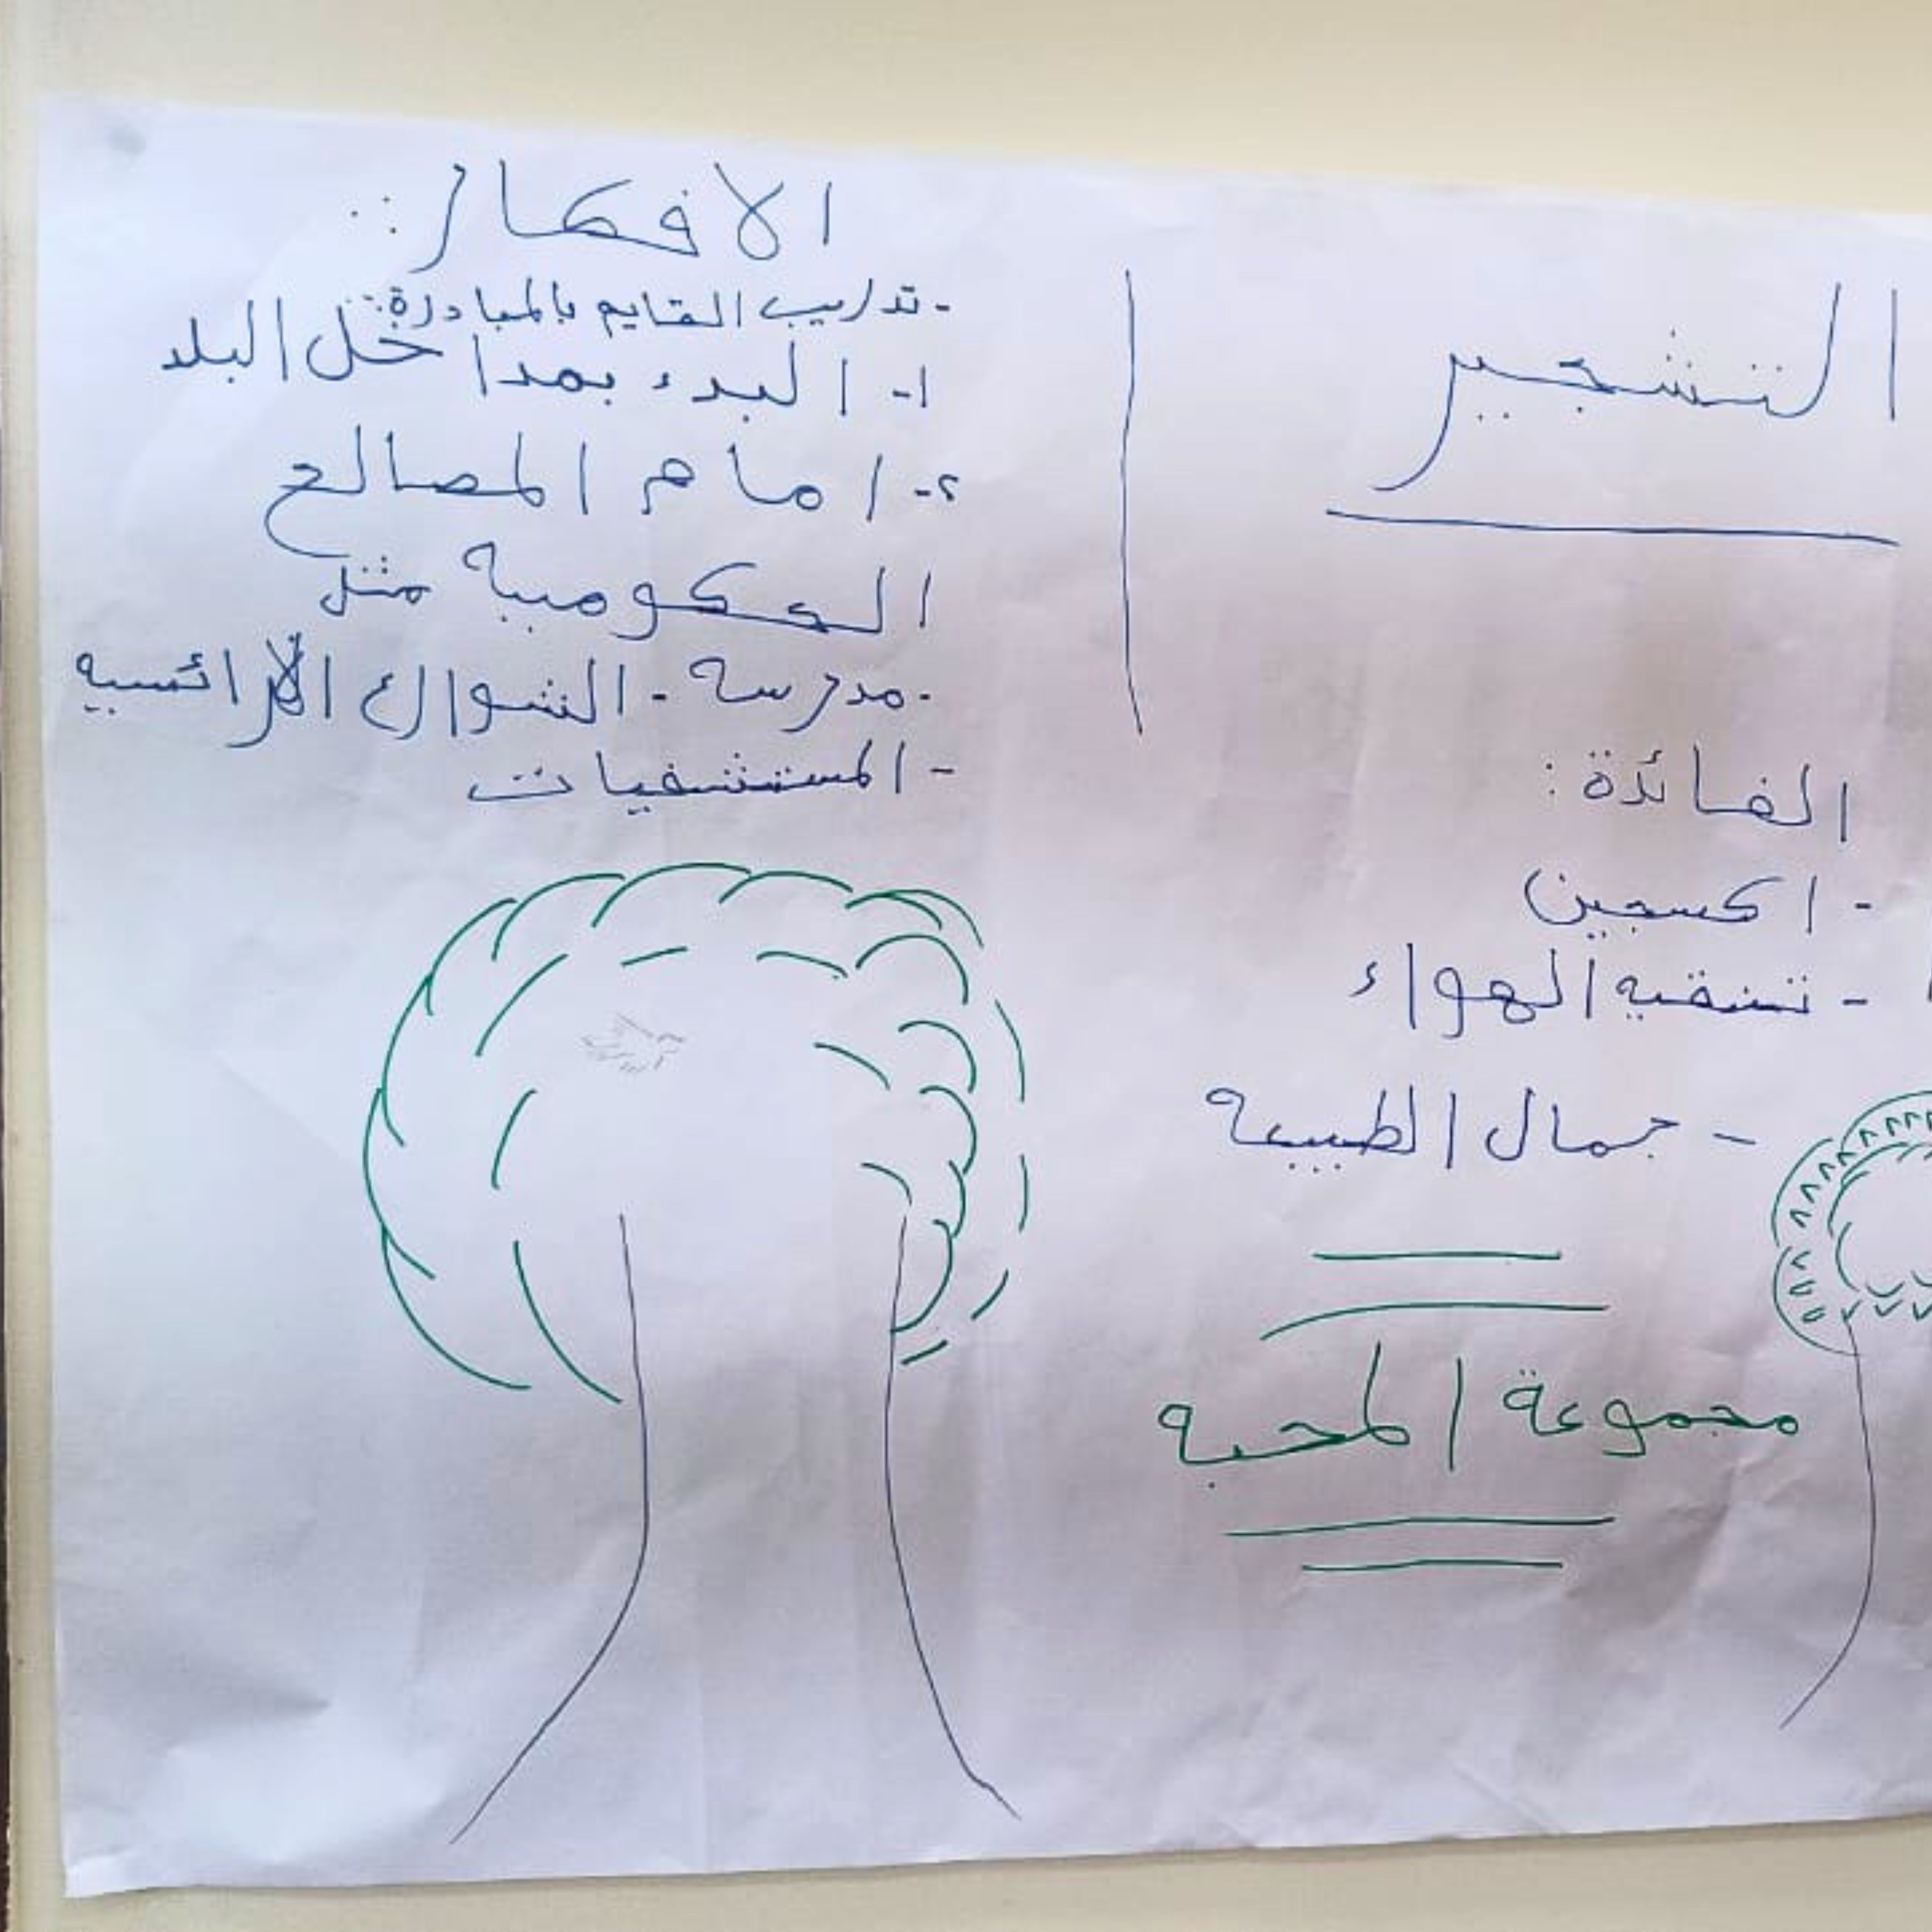 التشجير
الفائدة:
- اكسجين
- تنقيه الهواء
- جمال الطبيعه
مجموعة المحبه
الافكار:
- تدريب القايم بالمبادرة:
١- البدء بمداخل البلد
٢- امام المصالح
الحكوميه مثل
- مدرسه - الشوارع الرائسيه
- المستشفيات